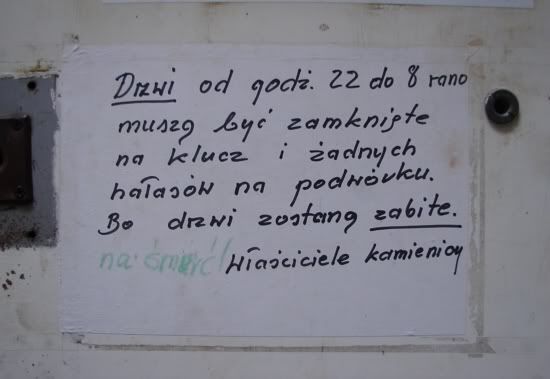 Drzwi od godź. 22 do 8 rano
muszą być zamknięte
na klucz i żadnych
hałasów na podwóvku.
Bo drzwi zostaną zabite.
na śmierć! właściciele kamienicy